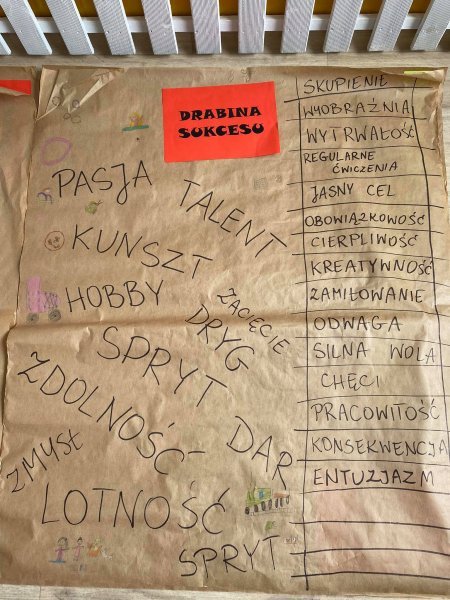 DRABINA
SUKCESU
PASJA
TALENT
KUNSZT
HOBBY
ZACIĘCIE
DRYG
SPRYT
ZDOLNOŚĆ
DAR
ZMYSŁ
LOTNOŚĆ
SPRYT
SKUPIENIE
WYOBRAŹNIA
WYTRWAŁOŚĆ
REGULARNE
ĆWICZENIA
JASNY CEL
OBOWIĄZKOWOŚĆ
CIERPLIWOŚĆ
KREATYWNOŚĆ
ZAMIŁOWANIE
ODWAGA
SILNA WOLA
CHĘCI
PRACOWITOŚĆ
KONSEKWENCJA
ENTUZJAZM